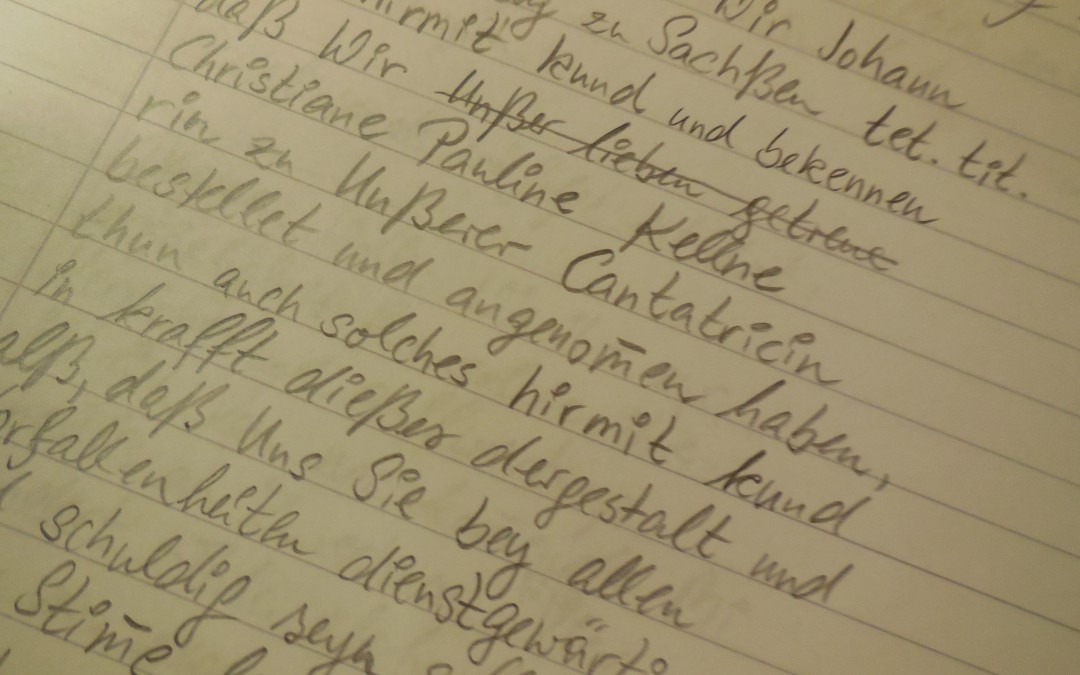 Wir Johann
zu Sachßen tet. tit.
hirmit kund und bekennen
daß Wir Unßer lieben getreue
Christiane Pauline Kellne
rin zu Unßerer Cantatricin
bestellet und angenom̄en haben,
thun auch solches hirmit kund
in krafft dießes dergestalt und
alß, daß Uns Sie bey allen
orfallenheiten dienstgewärti
schuldig seyn
Stim̄e